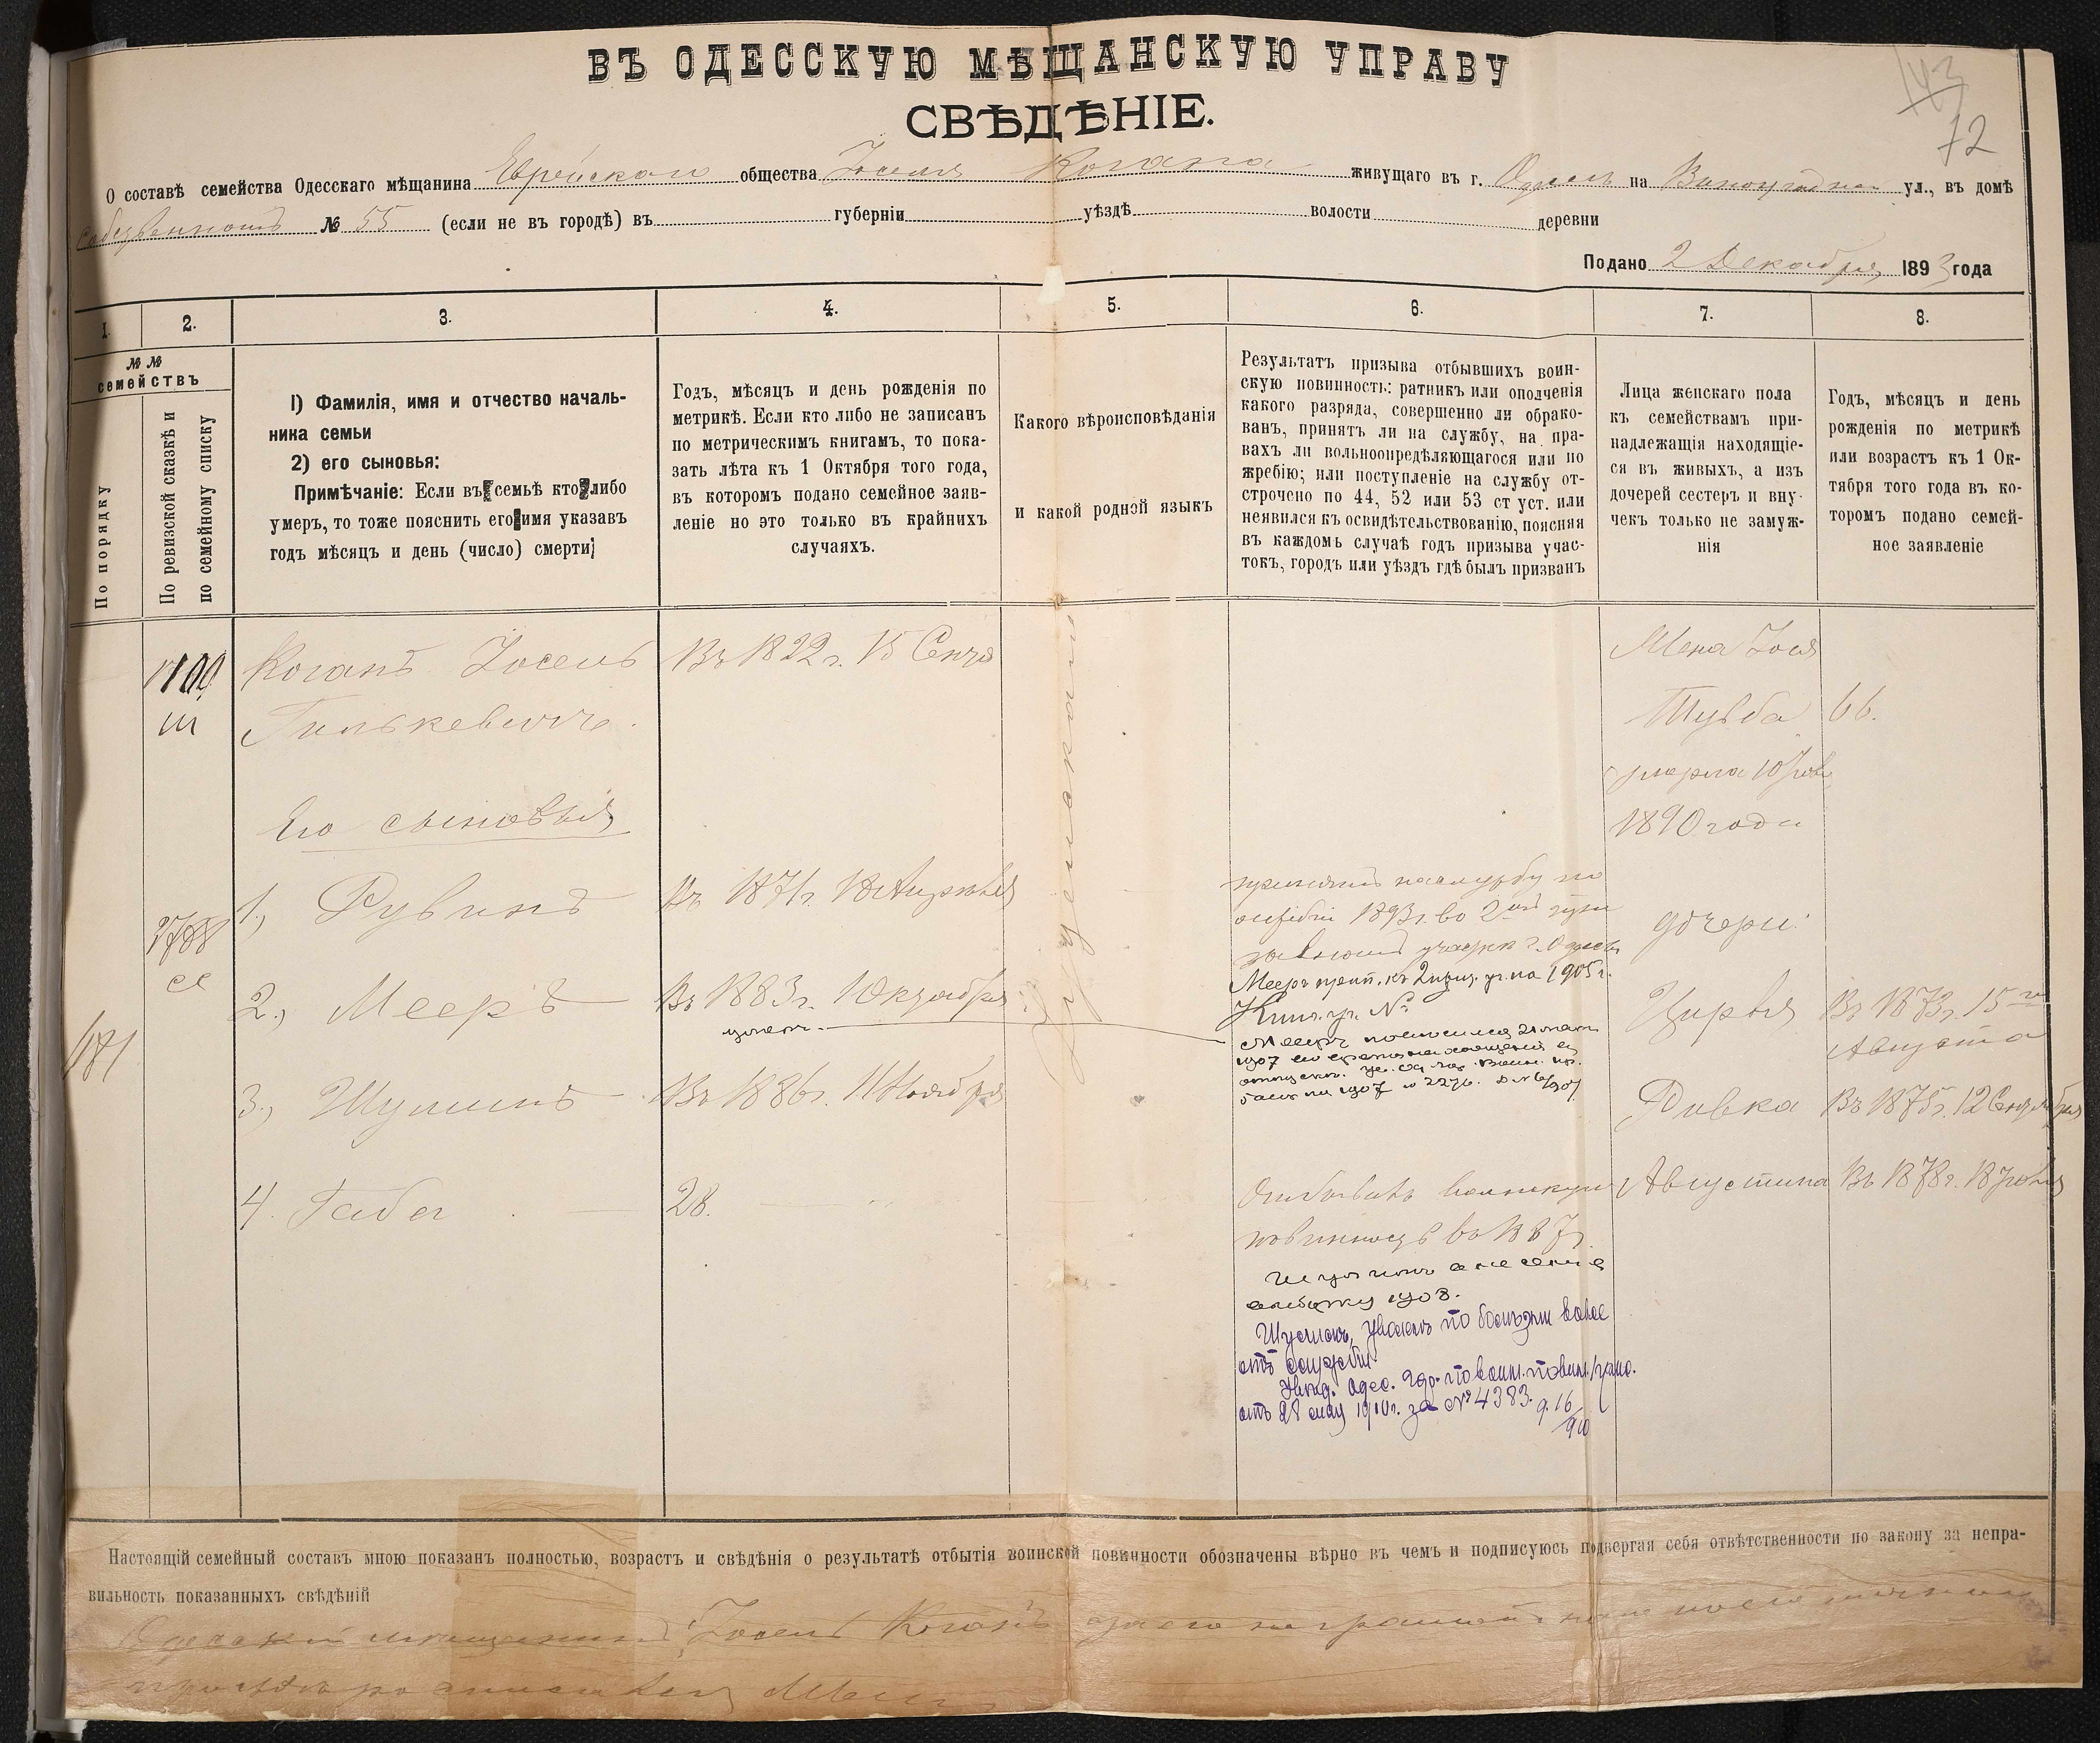 143
72
ВЪ ОДЕССКУЮ МѢЩАНСКУЮ УПРАВУ
СВѢДѢНІЕ.
О составѣ семейства Одесскаго мѣщанина Еврейскаго общества Іоселя Когана живущаго въ г. Одессѣ на Виноградной ул., въ домѣ
собственномъ № 55 (если не въ городѣ) въ губерніи уѣздѣ волости деревни
Подано 2 Декабря 1893 года
1. 2. 3. 4. 5. 6. 7. 8.
№ №
семействъ
По порядку
По ревизской сказкѣ и
по семейному списку
1) Фамилія, имя и отчество началь-
ника семьи
2) его сыновья:
Примѣчаніе: Если въ семьѣ кто либо
умеръ, то тоже пояснить его имя указавъ
годъ мѣсяцъ и день (число) смерти;
Годъ, мѣсяцъ и день рожденія по
метрикѣ. Если кто либо не записанъ
по метрическимъ книгамъ, то пока-
зать лѣта къ 1 Октября того года,
въ которомъ подано семейное заяв-
леніе но это только въ крайнихъ
случаяхъ.
Какого вѣроисповѣданія
и какой родной языкъ
Результатъ призыва отбывшихъ воин-
скую повинность: ратникъ или ополченія
какого разряда, совершенно ли обрако-
ванъ, принятъ ли на службу, на пра-
вахъ ли вольноопредѣляющагося или по
жребію; или поступленіе на службу от-
строчено по 44, 52 или 53 ст уст. или
неявился къ освидѣтельствованію, поясняя
въ каждомъ случаѣ годъ призыва учас-
токъ, городъ или уѣздъ гдѣ былъ призванъ
Лица женскаго пола
къ семействамъ при-
надлежащія находящіе-
ся въ живыхъ, а изъ
дочерей сестеръ и вну-
чекъ только не замуж-
нія
Годъ, мѣсяцъ и день
рожденія по метрикѣ
или возрастъ къ 1 Ок-
тября того года въ ко-
торомъ подано семей-
ное заявленіе
Коганъ Іосель
Въ 1822 г. 15 Сентя
Іудейскаго
66.
1890 года
Его сыновья
1., Рувинъ
Въ 1871 г. 18 Апрѣля
принятъ на службу по
1893 г. во 2омъ
участкѣ г. Одессы
дочери:
2788
2., Мееръ
Въ 1883 г. 1 Октября
Мееръ прип. къ 2 призу. уч. на 1905 г.
№
1907
1907 2276.
Цирля
Въ 1873 г. 15го
Августа
481
3., Шулимъ
Въ 1886 г. 11 Ноября
Ривка
Въ 1875 г. 12 Сентября
4. Габа
28.
Отбывалъ воинскую
повинность въ 1887 г.
Августина
Въ 1878 г. 18 Іюля
1908.
Шулимъ, уволенъ по болѣзни вовсе
отъ службы
Увѣд. Одес. гор. по воин. повин. прис.
отъ 28 мая 1910 г. за № 4383. д. 16/910
Настоящій семейный составъ мною показанъ полностью, возрастъ и свѣдѣнія о результатѣ отбытія воинской повинности обозначены вѣрно въ чемъ и подписуюсь подвергая себя отвѣтственности по закону за непра-
вильность показанныхъ свѣдѣній
Одесскій мѣщанинъ Іосель Коганъ а за его неграмотн